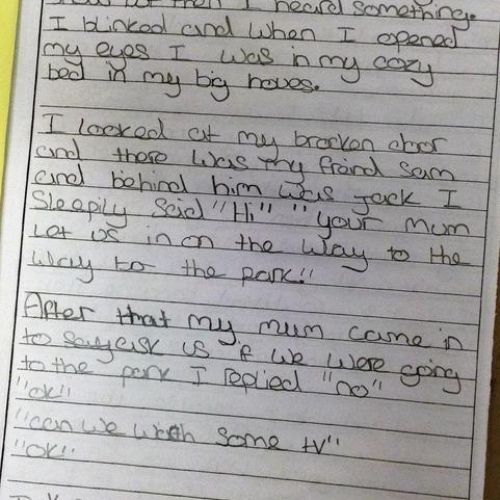 I heard something.
I blinked and when I opened
my eyes I was in my cozy
bed in my big houes.
I looked at my brocken door
and there was my fraind sam
and behind him was jack I
sleepily said "Hi" "your mum
Let us in on the way to the
way to the park"
After that my mum came in
to say ask us if we were going
to the park I replied "no"
"ok"
"can we wach some tv"
"ok"